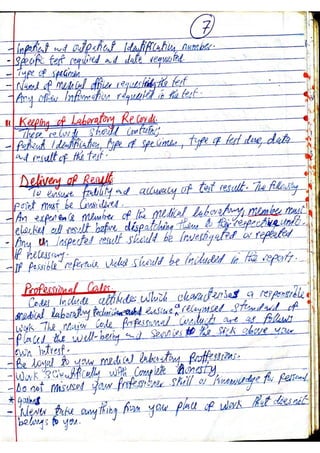 7
- Inpatient and outpatient Identification number.
- Specific test required and date requested
- Type of specimen
- Name of medical officer requesting the test
- Any other Information requested in the test.
Keeping of Laboratory Records
These records should contain;
- Patient Identification, type of specimen, type of test done, date
and result of the test.
Delivery of Results
To ensure facility and accuracy of test result. The following
point must be considered.
- An experience member of the medical laboratory, member must
checked all result before dispatching them to their respective
- Any un inspected result should be Investigated or repeated
if necessary.
- If possible reference valid should be included in the reports.
Professional Codes
Codes Include attitudes which characterises a responsible
medical laboratory and ensure a recognised standard of
work The major Code Professional Conducts are as follows
Placed the well-being and service to the sick above your
own Intrest.
Be loyal to your medical laboratory Proffessions.
Work Scientifically with Complete honesty
Do not misused your Professioner skill or knowledge for Personal
* gaines
- Never take anything from your place of work that does not
belongs to you.